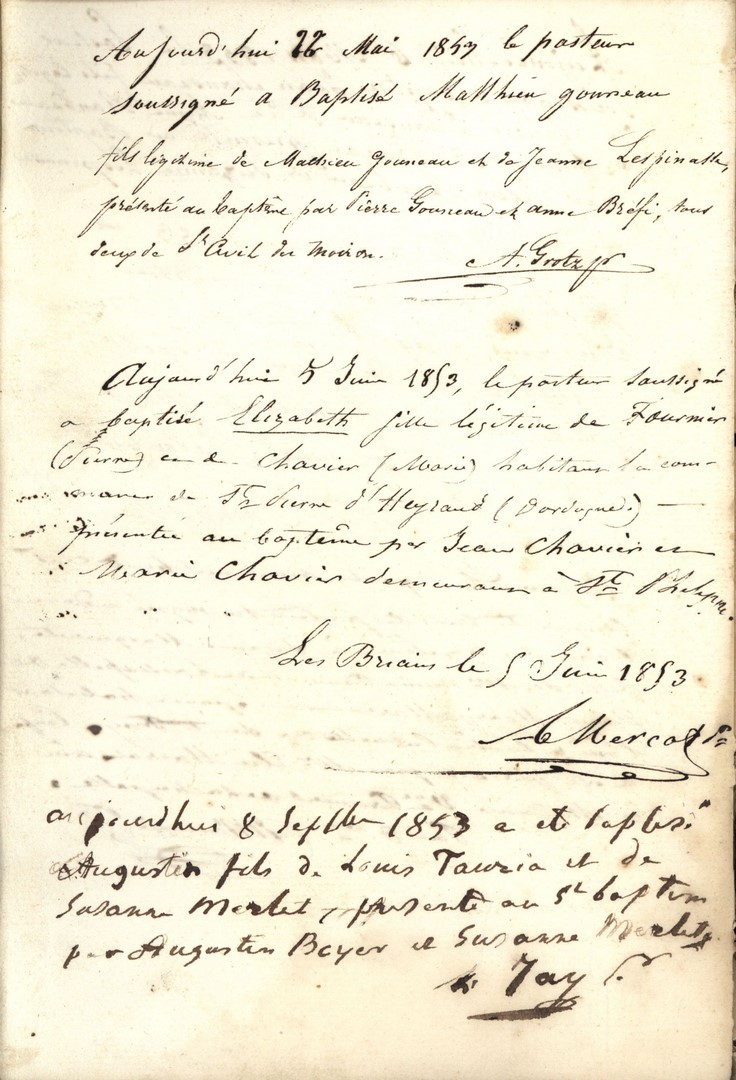 Aujourd'hui 22 Mai 1853 le pasteur
soussigné a Baptisé Matthieu gouneau
fils légitime de Mathieu Gouneau et de Jeanne Lespinasse,
présenté au baptême par Pierre Gouneau et anne Bréfi, tous
deux de St Avit du moiron.
A. Grotz pr
Aujourd'hui 5 Juin 1853, le pasteur soussigné
a baptisé Elizabeth fille légitime de Fournier
(Pierre) et de Chavier (Marie) habitant la com-
de St Pierre d'Heyraud (Dordogne)
présentée au baptême par Jean Chavier et
Marie Chavier demeurant à St Philippe.
Les Briands le 5 Juin 1853
A Mercat Pr
aujourdhui 8 Septbre 1853 a eté baptisé
Augustin fils de Louis Tauzia et de
Suzanne Merlet, presenté au St baptem
par Augustin Boyer et Suzanne Merlet
Jay Pr